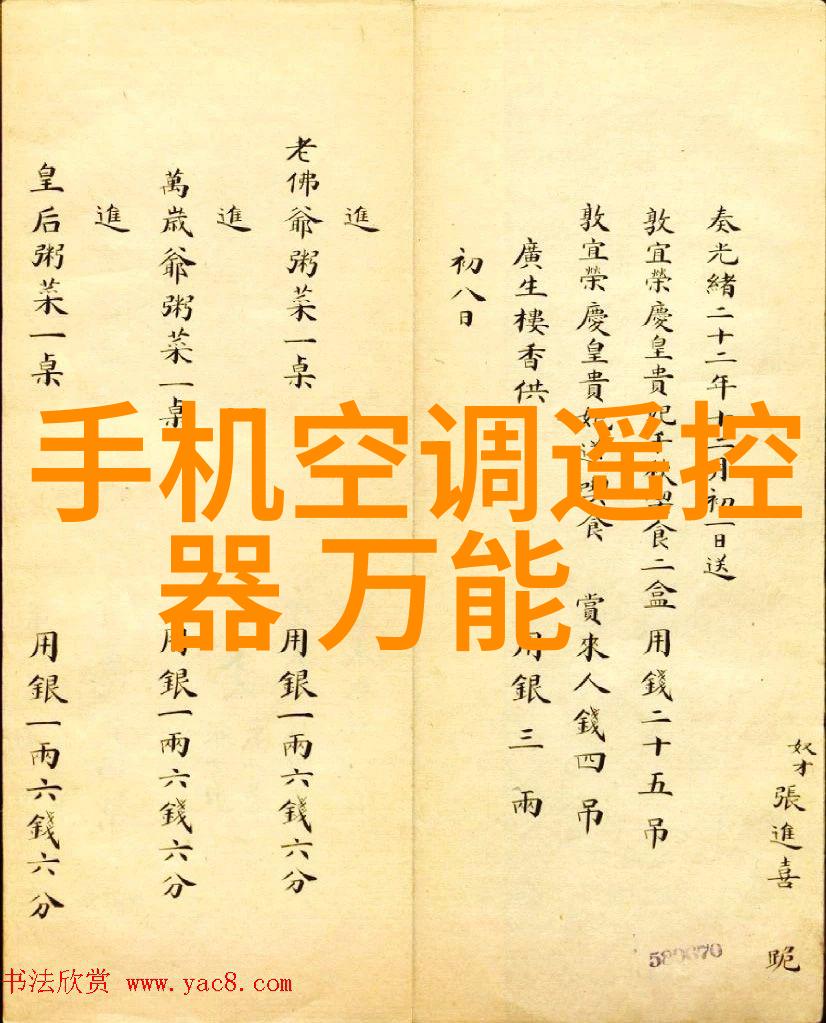 奴才張進喜 跪
奏光緒二十二年十二月初一日送
敦宜榮慶皇貴妃千秋食二盒 用錢二十五吊
敦宜榮慶皇貴妃送食 賞來人錢四吊
廣生樓香供 用銀三兩
初八日
進
老佛爺粥菜一桌 用銀一兩六錢六分
進
萬歲爺粥菜一桌 用銀一兩六錢六分
進
皇后粥菜一桌 用銀一兩六錢六分
手机空调遥控
器 万能
书法欣赏 www.yac8.com